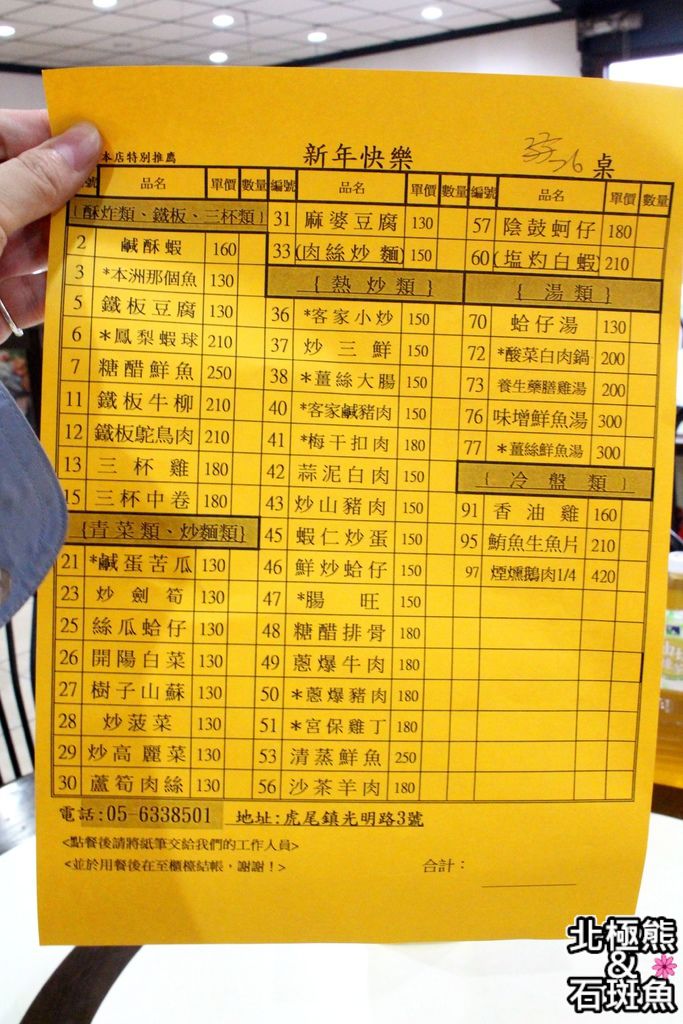 *本店特別推薦
新年快樂
桌
編號 品名 單價 數量 編號 品名 單價 數量 編號 品名 單價 數量
{酥炸類、鐵板、三杯類}
2 鹹酥蝦 160
3 *本洲那個魚 130
5 鐵板豆腐 130
6 *鳳梨蝦球 210
7 糖醋鮮魚 250
11 鐵板牛柳 210
12 鐵板鴕鳥肉 210
13 三杯雞 180
15 三杯中卷 180
{青菜類、炒麵類}
21 *鹹蛋苦瓜 130
23 炒劍筍 130
25 絲瓜蛤仔 130
26 開陽白菜 130
27 樹子山蘇 130
28 炒菠菜 130
29 炒高麗菜 130
30 蘆筍肉絲 130
31 麻婆豆腐 130
33 (肉絲炒麵) 150
{熱炒類}
36 *客家小炒 150
37 炒三鮮 150
38 *薑絲大腸 150
40 *客家鹹豬肉 150
41 *梅干扣肉 180
42 蒜泥白肉 150
43 炒山豬肉 150
45 蝦仁炒蛋 150
46 鮮炒蛤仔 150
47 *腸旺 150
48 糖醋排骨 180
49 蔥爆牛肉 180
50 *蔥爆豬肉 180
51 *宮保雞丁 180
53 清蒸鮮魚 250
56 沙茶羊肉 180
57 陰鼓蚵仔 180
60 (塩灼白蝦) 210
{湯類}
70 蛤仔湯 130
72 *酸菜白肉鍋 200
73 養生藥膳雞湯 200
76 味增鮮魚湯 300
77 *薑絲鮮魚湯 300
{冷盤類}
91 香油雞 160
95 鮪魚生魚片 210
97 煙燻鵝肉1/4 420
電話:05-6338501 地址:虎尾鎮光明路3號
<點餐後請將紙筆交給我們的工作人員>
<並於用餐後在至櫃檯結帳，謝謝！>
合計：
北極熊
&
石斑魚